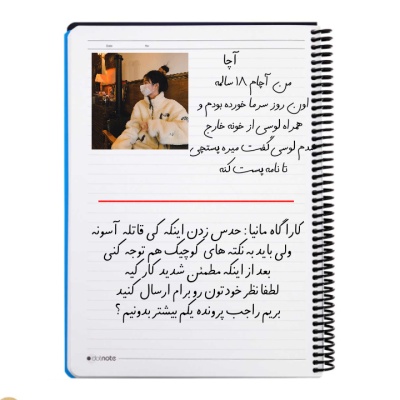 آچا
من آچام ۱۸ سالمه
اون روز سرما خورده بودم و
همراه لوسی از خونه خارج
شدم لوسی گفت میره پستچی
تا نامه پست کنه
کاراگاه مانیا: حدس زدن اینکه کی قاتله آسونه
ولی باید به نکته های کوچیک هم توجه کنی
بعد از اینکه مطمئن شدید کار کیه
لطفا نظر خودتون رو برام ارسال کنید
بریم راجب پرونده یکم بیشتر بدونیم؟
dotnote